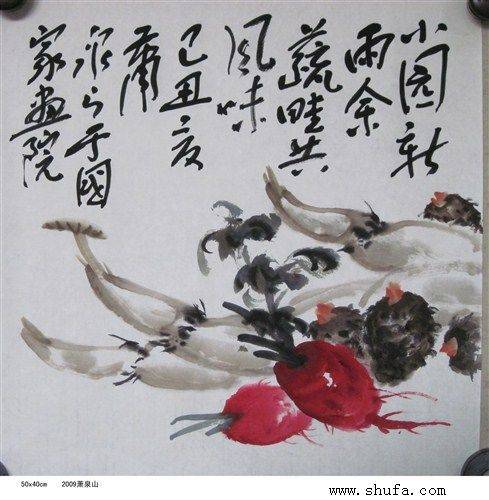 小园新
雨余
蔬畦共
风味
己丑夏
萧
泉山于國
家画院
50x40cm 2009萧泉山
www.shufa.com